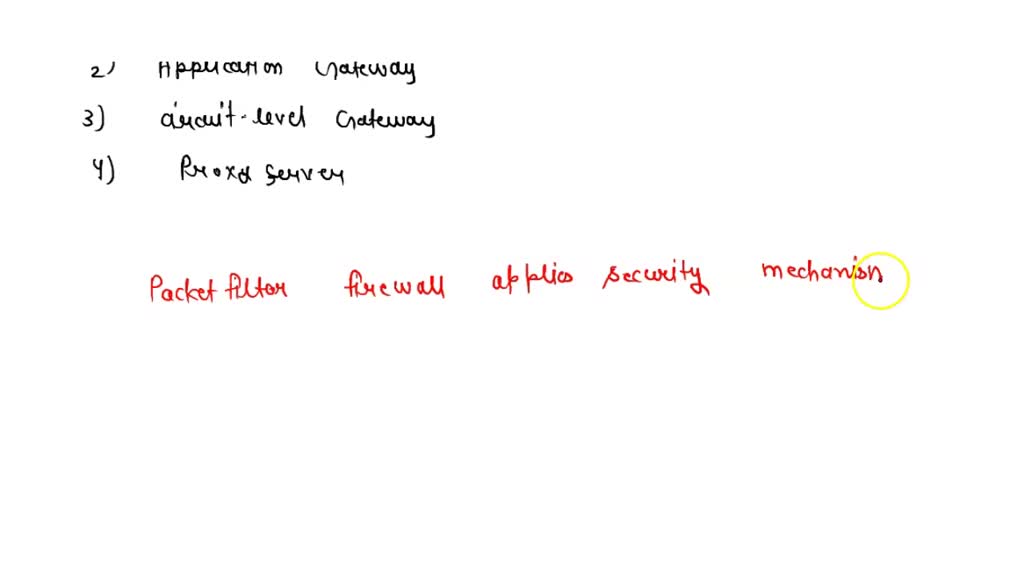 2) Application Gateway
3) circuit-level Gateway
4) Proxy server
Packet filter firewall applies security mechanism